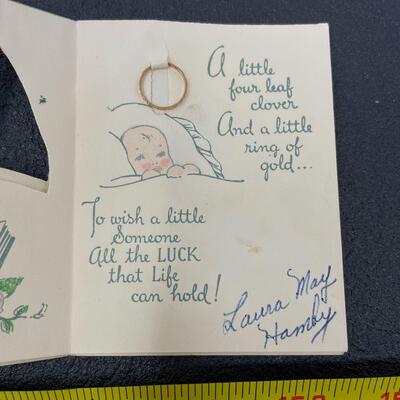 A little
four leaf
clover
And a little
ring of
gold...
To wish a little
Someone
All the LUCK
that Life
can hold!
Laura May
Hamby